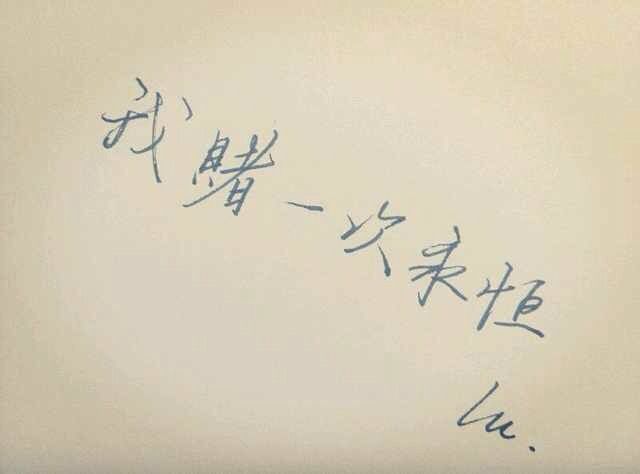 我賭一次永恒
Lu.